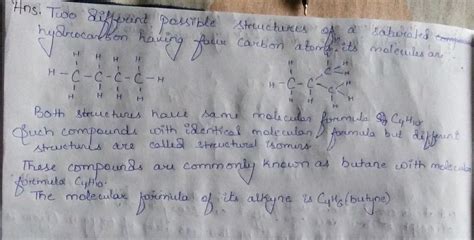 Ans. Two different possible structures of a saturated
hydrocarbon having four carbon atoms its molecules are
H H H H
H-C-C-C-C-H
H H H H
Both structures have same molecular formula C4H10
Such compounds with identical molecular formula but different
structures are called structural isomers.
These compounds are commonly known as butane with molecular
formula C4H10.
The molecular formula of its alkyne is C4H6 (butyne)